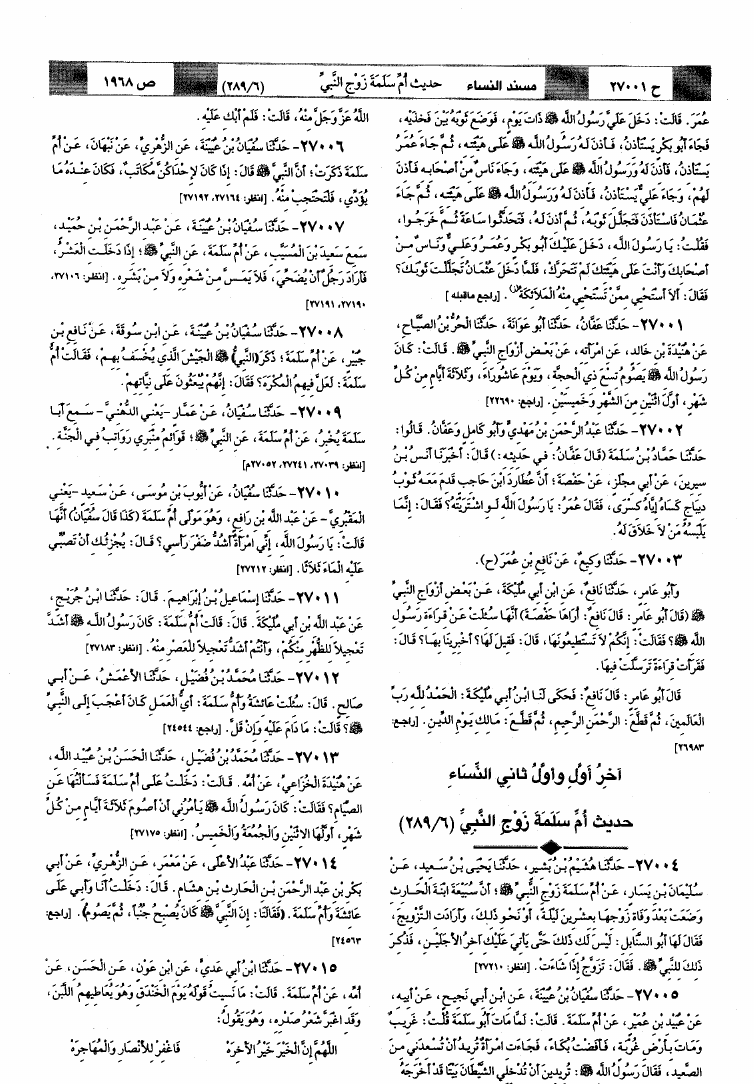 ح ٢٧٠٠١ مسند النساء حديث أم سلمة زوج النبيّ (٢٨٩/٦) ص ١٩٦٨
عُمَرَ. قَالَتْ: دَخَلَ عَلَيَّ رَسُولُ اللَّه ﷺ ذَاتَ يَوْمٍ، فَوَضَعَ ثَوْبَهُ بَيْنَ فَخِذَيْهِ،
فَجَاءَ أَبُو بَكْرٍ يَسْتَأْذِنُ، فَأَذِنَ لَهُ وَرَسُولُ اللَّه ﷺ عَلَى هَيْئَتِهِ، ثُمَّ جَاءَ عُمَرُ
يَسْتَأْذِنُ، فَأَذِنَ لَهُ وَرَسُولُ اللَّه ﷺ عَلَى هَيْئَتِهِ، وَجَاءَ نَاسٌ مِنْ أَصْحَابِهِ فَأَذِنَ
لَهُمْ، وَجَاءَ عَلِيٌّ يَسْتَأْذِنُ، فَأَذِنَ لَهُ وَرَسُولُ اللَّه ﷺ عَلَى هَيْئَتِهِ، ثُمَّ جَاءَ
عُثْمَانُ فَاسْتَأْذَنَ فَتَجَلَّلَ ثَوْبَهُ، ثُمَّ أَذِنَ لَهُ، فَتَحَدَّثُوا سَاعَةً ثُمَّ خَرَجُوا،
فَقُلْتُ: يَا رَسُولَ اللَّه، دَخَلَ عَلَيْكَ أَبُو بَكْرٍ وَعُمَرُ وَعَلِيٌّ وَنَاسٌ مِنْ
أَصْحَابِكَ وَأَنْتَ عَلَى هَيْئَتِكَ لَمْ تَتَحَرَّكْ، فَلَمَّا دَخَلَ عُثْمَانُ تَجَلَّلْتَ ثَوْبَكَ؟
فَقَالَ: أَلاَ أَسْتَحْيِي مِمَّنْ تَسْتَحْيِي مِنْهُ الْمَلاَئِكَةُ(١). [راجع ماقبله]
٢٧٠٠١- حَدَّثَنَا عَفَّانُ، حَدَّثَنَا أَبُو عَوَانَةَ، حَدَّثَنَا الْحُرُّ بْنُ الصَّيَّاحِ،
عَنْ هُنَيْدَةَ بْنِ خَالِدٍ، عَنِ امْرَأَتِهِ، عَنْ بَعْضِ أَزْوَاجِ النَّبِيِّ ﷺ. قَالَتْ: كَانَ
رَسُولُ اللَّه ﷺ يَصُومُ تِسْعَ ذِي الْحِجَّةِ، وَيَوْمَ عَاشُورَاءَ، وَثَلاَثَةَ أَيَّامٍ مِنْ كُلِّ
شَهْرٍ، أَوَّلَ اثْنَيْنِ مِنَ الشَّهْرِ وَخَمِيسَيْنِ. [راجع: ٢٢٦٩٠]
٢٧٠٠٢- حَدَّثَنَا عَبْدُ الرَّحْمَنِ بْنُ مَهْدِيٍّ وَأَبُو كَامِلٍ وَعَفَّانُ. قَالُوا:
حَدَّثَنَا حَمَّادُ بْنُ سَلَمَةَ (قَالَ عَفَّانُ: فِي حَدِيثِهِ:) قَالَ: أَخْبَرَنَا أَنَسُ بْنُ
سِيرِينَ، عَنْ أَبِي مِجْلَزٍ، عَنْ حَفْصَةَ؛ أَنَّ عُطَارِدَ ابْنَ حَاجِبٍ قَدِمَ مَعَهُ ثَوْبُ
دِيبَاجٍ كَسَاهُ إِيَّاهُ كِسْرَى، فَقَالَ عُمَرُ: يَا رَسُولَ اللَّه لَوِ اشْتَرَيْتَهُ؟ فَقَالَ: إِنَّمَا
يَلْبَسُهُ مَنْ لاَ خَلاَقَ لَهُ.
٢٧٠٠٣- حَدَّثَنَا وَكِيعٌ، عَنْ نَافِعِ بْنِ عُمَرَ (ح).
وَأَبُو عَامِرٍ، حَدَّثَنَا نَافِعٌ، عَنِ ابْنِ أَبِي مُلَيْكَةَ، عَنْ بَعْضِ أَزْوَاجِ النَّبِيِّ
ﷺ (قَالَ أَبُو عَامِرٍ: قَالَ نَافِعٌ: أُرَاهَا حَفْصَةَ) أَنَّهَا سُئِلَتْ عَنْ قِرَاءَةِ رَسُولِ
اللَّه ﷺ؟ فَقَالَتْ: إِنَّكُمْ لاَ تَسْتَطِيعُونَهَا، قَالَ: فَقِيلَ لَهَا؟ أَخْبِرِينَا بِهَا؟ قَالَ:
فَقَرَأَتْ قِرَاءَةً تَرَسَّلَتْ فِيهَا.
قَالَ أَبُو عَامِرٍ: قَالَ نَافِعٌ: فَحَكَى لَنَا ابْنُ أَبِي مُلَيْكَةَ: الْحَمْدُ لِلَّهِ رَبِّ
الْعَالَمِينَ، ثُمَّ قَطَّعَ: الرَّحْمَنِ الرَّحِيمِ، ثُمَّ قَطَّعَ: مَالِكِ يَوْمِ الدِّينِ. [راجع:
٢٦٩٨٣]
آخرُ أولِ وأولُ ثاني النِّسَاءِ
حديث أُمِّ سَلَمَةَ زَوْجِ النَّبِيِّ (٢٨٩/٦)
٢٧٠٠٤- حَدَّثَنَا هُشَيْمُ بْنُ بَشِيرٍ، حَدَّثَنَا يَحْيَى بْنُ سَعِيدٍ، عَنْ
سُلَيْمَانَ بْنِ يَسَارٍ، عَنْ أُمِّ سَلَمَةَ زَوْجِ النَّبِيِّ ﷺ؛ أَنَّ سُبَيْعَةَ ابْنَةَ الْحَارِثِ
وَضَعَتْ بَعْدَ وَفَاةِ زَوْجِهَا بِعِشْرِينَ لَيْلَةً، أَوْ نَحْوَ ذَلِكَ، وَأَرَادَتِ التَّزْوِيجَ،
فَقَالَ لَهَا أَبُو السَّنَابِلِ: لَيْسَ لَكِ ذَلِكَ حَتَّى يَأْتِيَ عَلَيْكِ آخِرُ الأَجَلَيْنِ، فَذُكِرَ
ذَلِكَ لِلنَّبِيِّ ﷺ. فَقَالَ: تَزَوَّجُ إِذَا شَاءَتْ. [انظر: ٢٧٢١٠]
٢٧٠٠٥- حَدَّثَنَا سُفْيَانُ بْنُ عُيَيْنَةَ، عَنِ ابْنِ أَبِي نَجِيحٍ، عَنْ أَبِيهِ،
عَنْ عُبَيْدِ بْنِ عُمَيْرٍ، عَنْ أُمِّ سَلَمَةَ. قَالَتْ: لَمَّا مَاتَ أَبُو سَلَمَةَ قُلْتُ: غَرِيبٌ
وَمَاتَ بِأَرْضِ غُرْبَةٍ، فَأَفَضْتُ بُكَاءً، فَجَاءَتِ امْرَأَةٌ تُرِيدُ أَنْ تُسْعِدَنِي مِنَ
الصَّعِيدِ، فَقَالَ رَسُولُ اللَّه ﷺ: تُرِيدِينَ أَنْ تُدْخِلِي الشَّيْطَانَ بَيْتًا قَدْ أَخْرَجَهُ
اللَّهُ عَزَّ وَجَلَّ مِنْهُ، قَالَتْ: فَلَمْ أَبْكِ عَلَيْهِ.
٢٧٠٠٦- حَدَّثَنَا سُفْيَانُ بْنُ عُيَيْنَةَ، عَنِ الزُّهْرِيِّ، عَنْ نَبْهَانَ، عَنْ أُمِّ
سَلَمَةَ ذَكَرَتْ؛ أَنَّ النَّبِيَّ ﷺ قَالَ: إِذَا كَانَ لإِحْدَاكُنَّ مُكَاتَبٌ، فَكَانَ عِنْدَهُ مَا
يُؤَدِّي، فَلْتَحْتَجِبْ مِنْهُ. [انظر: ٢٧١٦٤، ٢٧١٩٢]
٢٧٠٠٧- حَدَّثَنَا سُفْيَانُ بْنُ عُيَيْنَةَ، عَنْ عَبْدِ الرَّحْمَنِ بْنِ حُمَيْدٍ،
سَمِعَ سَعِيدَ بْنَ الْمُسَيِّبِ، عَنْ أُمِّ سَلَمَةَ، عَنِ النَّبِيِّ ﷺ؛ إِذَا دَخَلَتِ الْعَشْرُ،
فَأَرَادَ رَجُلٌ أَنْ يُضَحِّيَ، فَلاَ يَمَسَّ مِنْ شَعْرِهِ وَلاَ مِنْ بَشَرِهِ. [انظر: ٢٧١٠٦،
٢٧١٩٠، ٢٧١٩١]
٢٧٠٠٨- حَدَّثَنَا سُفْيَانُ بْنُ عُيَيْنَةَ، عَنِ ابْنِ سُوقَةَ، عَنْ نَافِعِ بْنِ
جُبَيْرٍ، عَنْ أُمِّ سَلَمَةَ؛ ذَكَرَ (النَّبِيُّ) ﷺ الْجَيْشَ الَّذِي يُخْسَفُ بِهِمْ، فَقَالَتْ أُمُّ
سَلَمَةَ: لَعَلَّ فِيهِمُ الْمُكْرَهَ؟ فَقَالَ: إِنَّهُمْ يُبْعَثُونَ عَلَى نِيَّاتِهِمْ.
٢٧٠٠٩- حَدَّثَنَا سُفْيَانُ، عَنْ عَمَّارٍ -يَعْنِي الدُّهْنِيَّ- سَمِعَ أَبَا
سَلَمَةَ يُخْبِرُ، عَنْ أُمِّ سَلَمَةَ، عَنِ النَّبِيِّ ﷺ؛ قَوَائِمُ مِنْبَرِي رَوَاتِبُ فِي الْجَنَّةِ.
[انظر: ٢٧٠٣٩، ٢٧٢٤١، ٢٧٠٥٢م]
٢٧٠١٠- حَدَّثَنَا سُفْيَانُ، عَنْ أَيُّوبَ بْنِ مُوسَى، عَنْ سَعِيدٍ -يَعْنِي
الْمَقْبُرِيَّ- عَنْ عَبْدِ اللَّهِ بْنِ رَافِعٍ، وَهُوَ مَوْلَى أُمِّ سَلَمَةَ (كَذَا قَالَ سُفْيَانُ) أَنَّهَا
قَالَتْ: يَا رَسُولَ اللَّهِ، إِنِّي امْرَأَةٌ أَشُدُّ ضَفْرَ رَأْسِي؟ قَالَ: يُجْزِئُكِ أَنْ تَصُبِّي
عَلَيْهِ الْمَاءَ ثَلاَثًا. [انظر: ٢٧٢١٢]
٢٧٠١١- حَدَّثَنَا إِسْمَاعِيلُ بْنُ إِبْرَاهِيمَ. قَالَ: حَدَّثَنَا ابْنُ جُرَيْجٍ،
عَنْ عَبْدِ اللَّهِ بْنِ أَبِي مُلَيْكَةَ. قَالَ: قَالَتْ أُمُّ سَلَمَةَ: كَانَ رَسُولُ اللَّهِ ﷺ أَشَدَّ
تَعْجِيلاً لِلظُّهْرِ مِنْكُمْ، وَأَنْتُمْ أَشَدُّ تَعْجِيلاً لِلْعَصْرِ مِنْهُ. [انظر: ٢٧١٨٣]
٢٧٠١٢- حَدَّثَنَا مُحَمَّدُ بْنُ فُضَيْلٍ، حَدَّثَنَا الأَعْمَشُ، عَنْ أَبِي
صَالِحٍ. قَالَ: سُئِلَتْ عَائِشَةُ وَأُمُّ سَلَمَةَ: أَيُّ الْعَمَلِ كَانَ أَعْجَبَ إِلَى النَّبِيِّ
ﷺ؟ قَالَتْ: مَا دَامَ عَلَيْهِ وَإِنْ قَلَّ. [راجع: ٢٤٥٤٤]
٢٧٠١٣- حَدَّثَنَا مُحَمَّدُ بْنُ فُضَيْلٍ، حَدَّثَنَا الْحَسَنُ بْنُ عُبَيْدِ اللَّهِ،
عَنْ هُنَيْدَةَ الْخُزَاعِيِّ، عَنْ أُمِّهِ. قَالَتْ: دَخَلْتُ عَلَى أُمِّ سَلَمَةَ فَسَأَلْتُهَا عَنِ
الصِّيَامِ؟ فَقَالَتْ: كَانَ رَسُولُ اللَّهِ ﷺ يَأْمُرُنِي أَنْ أَصُومَ ثَلاَثَةَ أَيَّامٍ مِنْ كُلِّ
شَهْرٍ، أَوَّلُهَا الاِثْنَيْنِ وَالْجُمُعَةُ وَالْخَمِيسُ. [انظر: ٢٧١٧٥]
٢٧٠١٤- حَدَّثَنَا عَبْدُ الأَعْلَى، عَنْ مَعْمَرٍ، عَنِ الزُّهْرِيِّ، عَنْ أَبِي
بَكْرِ بْنِ عَبْدِ الرَّحْمَنِ بْنِ الْحَارِثِ بْنِ هِشَامٍ. قَالَ: دَخَلْتُ أَنَا وَأَبِي عَلَى
عَائِشَةَ وَأُمِّ سَلَمَةَ. (فَقَالَتَا: إِنَّ النَّبِيَّ ﷺ كَانَ يُصْبِحُ جُنُبًا، ثُمَّ يَصُومُ). [راجع:
٢٤٥٦٣]
٢٧٠١٥- حَدَّثَنَا ابْنُ أَبِي عَدِيٍّ، عَنِ ابْنِ عَوْنٍ، عَنِ الْحَسَنِ، عَنْ
أُمِّهِ، عَنْ أُمِّ سَلَمَةَ. قَالَتْ: مَا نَسِيتُ قَوْلَهُ يَوْمَ الْخَنْدَقِ وَهُوَ يُعَاطِيهِمُ اللَّبَنَ،
وَقَدِ اغْبَرَّ شَعْرُ صَدْرِهِ، وَهُوَ يَقُولُ:
اللَّهُمَّ إِنَّ الْخَيْرَ خَيْرُ الآخِرَهْ فَاغْفِرْ لِلأَنْصَارِ وَالْمُهَاجِرَهْ